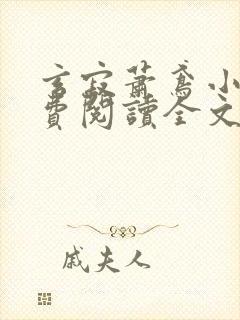 言寂蕭鳶小
費閱讀全文
戚夫人